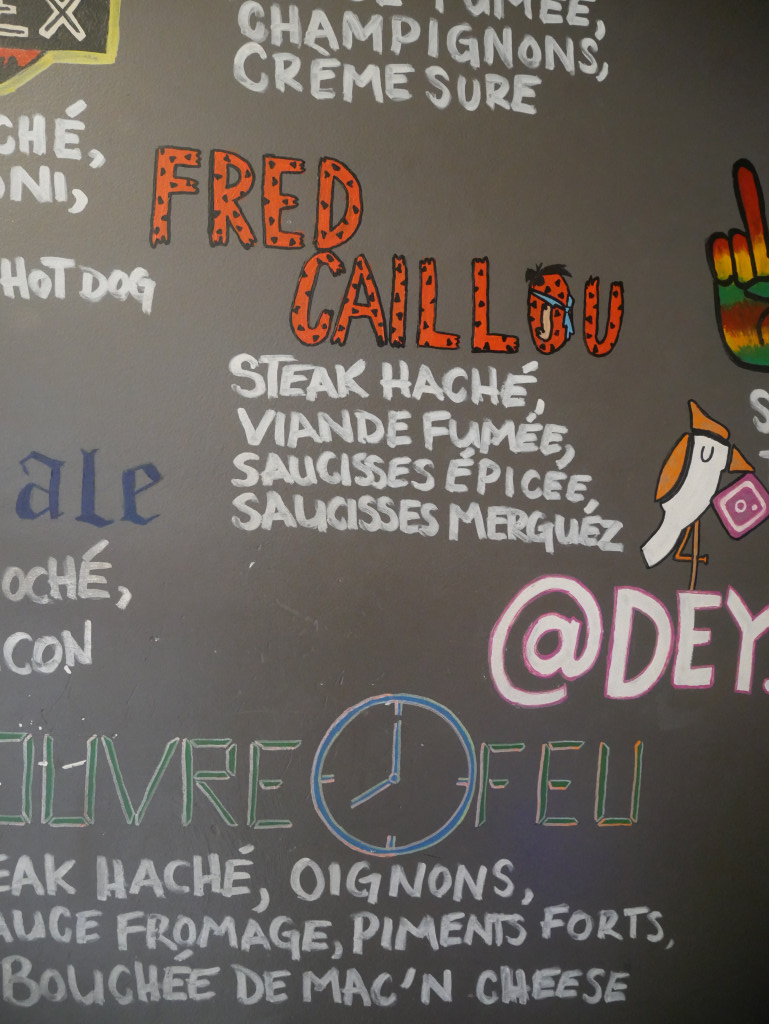 EX
FUMÉE,
CHAMPIGNONS,
CRÈME SURE
CHÉ,
ONI,
HOT DOG
FRED
CAILLOU
STEAK HACHÉ,
VIANDE FUMÉE,
SAUCISSES ÉPICÉE,
SAUCISSES MERGUÉZ
ale
OCHÉ,
CON
@DEY
OUVRE FEU
EAK HACHÉ, OIGNONS,
AUCE FROMAGE, PIMENTS FORTS,
BOUCHÉE DE MAC'N CHEESE